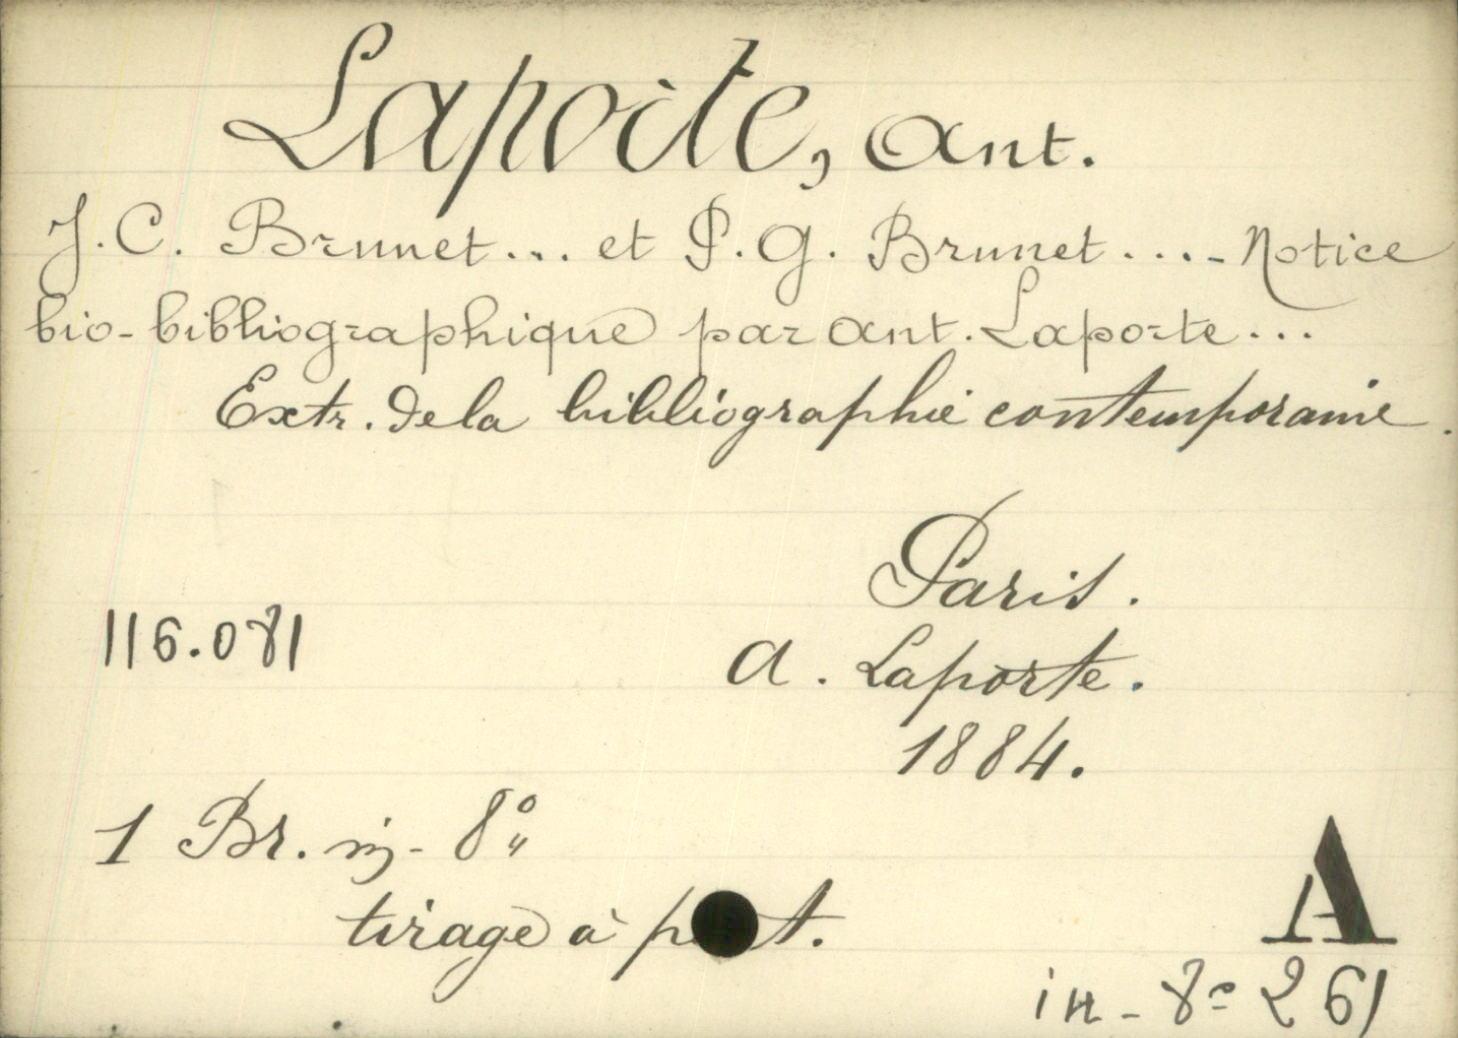 Laporte, Ant.
J. C. Brunet... et P. G. Brunet.... - Notice
bio-bibliographique par Ant. Laporte...
Extr. de la bibliographie contemporaine.
Paris.
116.081
A. Laporte.
1884.
1 Br. in-8°
tirage à p t.
A
in-8° 261